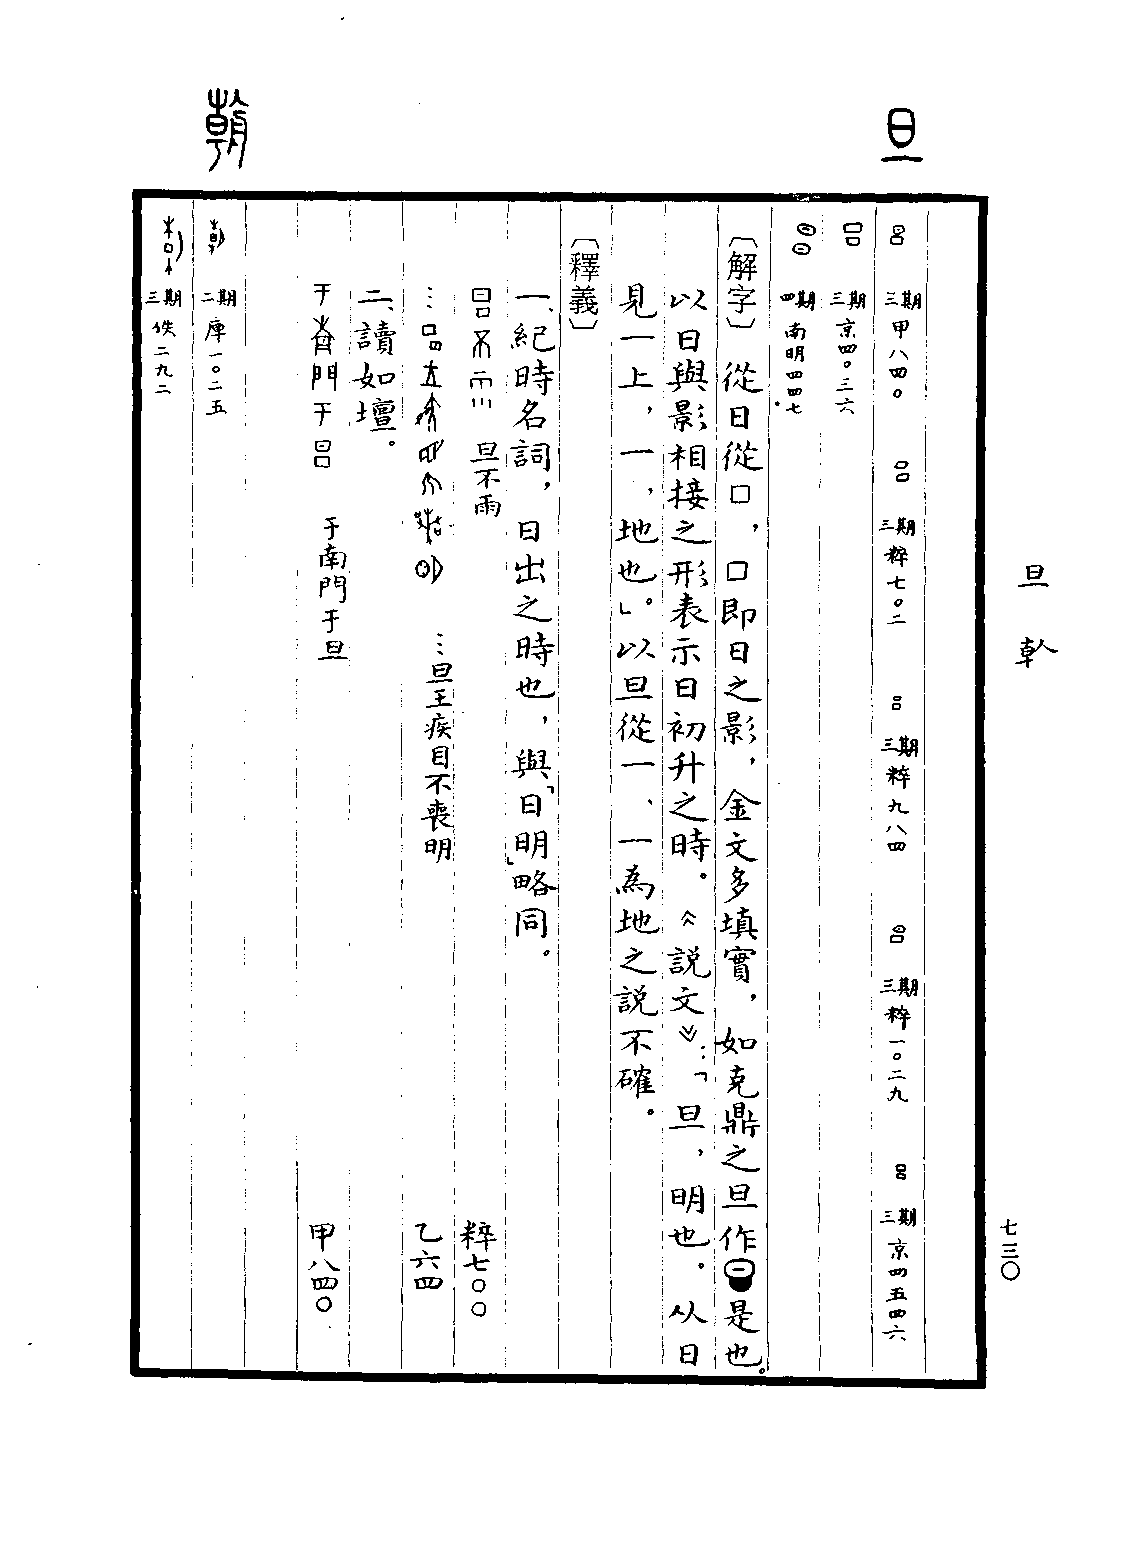 旦 倝
七三〇
旦
三期 甲八四〇 三期 粹七〇二 三期 粹九八四 三期 粹一〇二九 三期 京四五四六
三期 京四〇三六
四期 南明四四七
〔解字〕從日從口，口即日之影，金文多填實，如克鼎之旦作是也。
以日與影相接之形表示日初升之時。《說文》：「旦，明也。从日
見一上，一，地也」。以旦從一、一為地之說不確。
〔釋義〕
一、紀時名詞，日出之時也，與「日明」略同。
旦不雨 粹七〇〇
…旦王疾目不喪明 乙六四
二、讀如壇。
于南門于旦 甲八四〇
倝
二期 庫一〇二五
三期 佚二九二